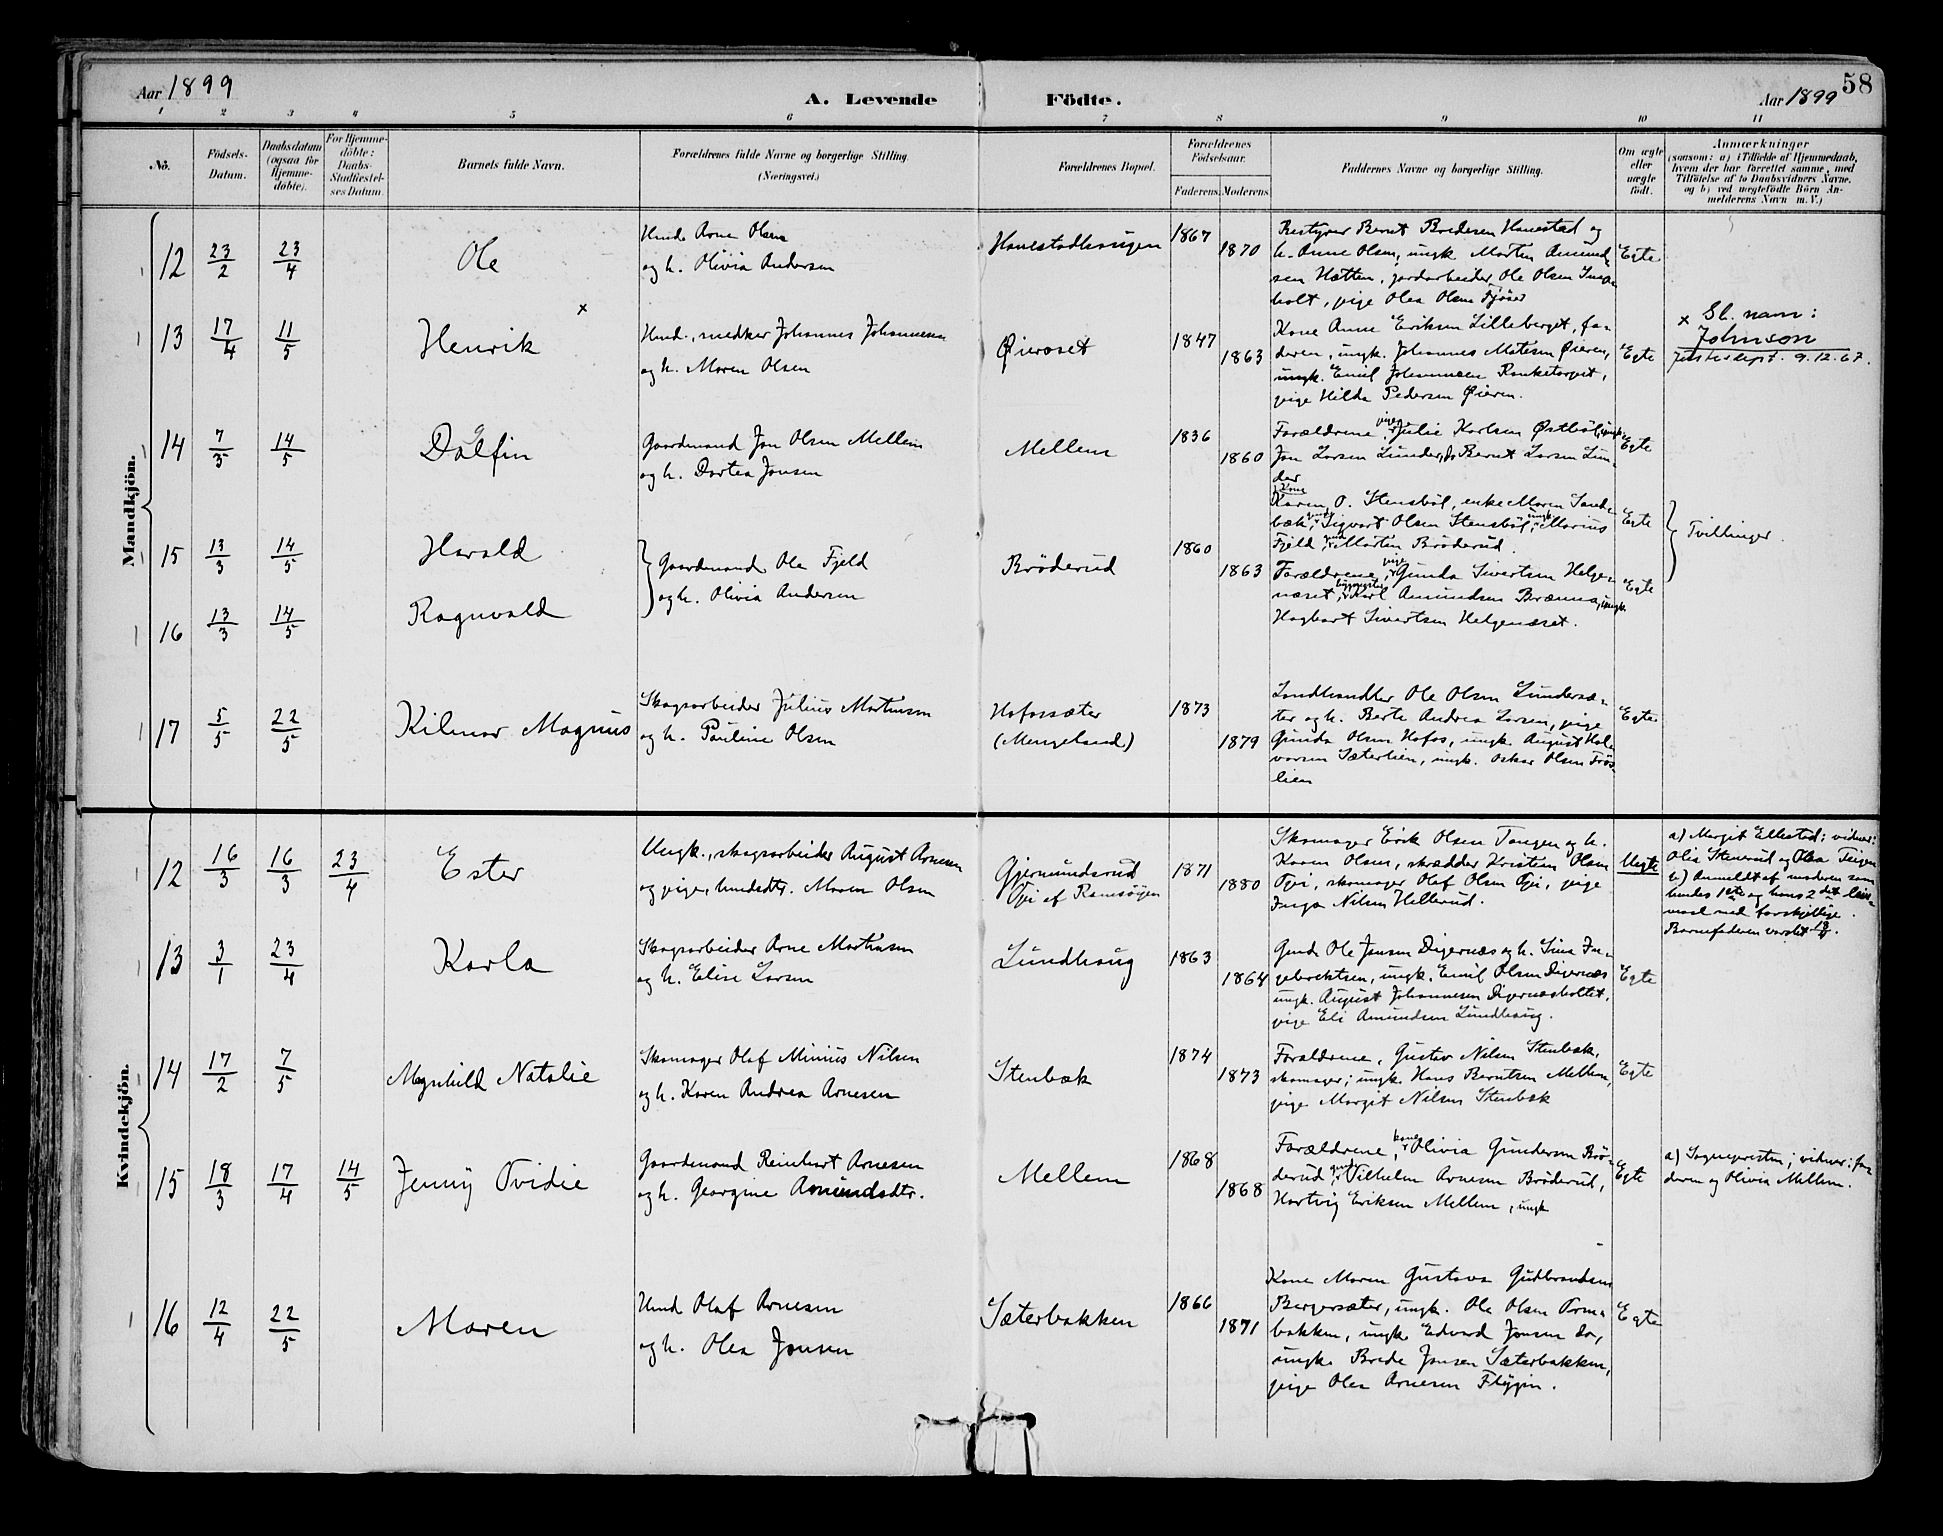 Aar 1899
A. Levende Födte.
Aar 1899
58
1 2 3 4 5 6 7 8 9 10 11
No.
Födsels-
Datum.
Daabsdatum
(ogsaa for
Hjemme-
döbte).
For Hjemme-
döbte:
Daabs-
Stadfæstel-
ses Datum.
Barnets fulde Navn.
Forældrenes fulde Navne og borgerlige Stilling
(Næringsvei.)
Forældrenes Bopæl.
Forældrenes
Födselsaar.
Faderens. Moderens.
Faddernes Navne og borgerlige Stilling.
Om ægte
eller
uægte
födt.
Anmærkninger
(saasom: a) i Tilfælde af Hjemmedaab,
hvem der har forrettet samme, med
Tilföielse af to Daabsvidners Navne,
og b) ved uægtefödte Börn An-
melderens Navn m. V.)
Mandkjön.
12 23/2 23/4
Ole
Hmd. Arne Olsen
og h. Olivia Andersen
Hanestadhaugen
1867
1870
Bestyrer Bernt Bredesen Hanestad og
h. Anne Olsen, ungk. Martin Amund-
sen Hætten, jordarbeider Ole Olsen
holt, pige Olea Olsen Fjöser
Egte
13 17/4 11/5
Henrik
x
Hmd., snedker Johannes Johannesen
og h. Maren Olsen
Øieroset
1847
1863
Kone Anne Eriksen Lilleberget, fa-
deren, ungk. Johannes Matesen Øieren,
ungk. Emil Johannesen Ranketorpet,
pige Hilda Pedersen Øieren.
Egte
x Sl. nam:
Johnson
9.12.67.
14 7/3 14/5
Dagfin
Gaardmand Jon Olsen Mellem
og h. Dortea Jonsen
Mellem
1836
1860
Forældrene, pige Julie Karlsen Østböl, ungk.
Jon Larsen Lunder, do Bernt Larsen Lun-
der
Egte
15 13/3 14/5
Harald
Gaardmand Ole Fjeld
og h. Olivia Andersen
Bröderud
1860
1863
Kone
Karen O. Stensböl, enke Maren Sand-
bæk, Sigvart Olsen Stensböl, ungk. Marius
Fjeld, Martin Bröderud.
Egte
Tvillinger
16 13/3 14/5
Ragnvald
Forældrene, pige Gunda Sivertsen Helge-
næset, Karl Amundsen Brænna, ungk.
Hagbart Sivertsen Helgenæset.
Egte
17 5/5 22/5
Kilmar Magnus
Skogsarbeider Julius Martinsen
og h. Pauline Olsen
Hofossæter
(Mengeland)
1873
1879
Landhandler Ole Olsen Lundersæ-
ter og h. Berte Andrea Larsen, pige
Gunda Olsen Hofos, ungk. August Hal-
vorsen Sæterlien, ungk. Oskar Olsen Frös-
lien
Egte
Kvindekjön.
12 16/3 16/3 23/4
Ester
Ungk., skogsarbeider August Arnesen
og pige, hmdsdtr. Maren Olsen
Gjermundsrud
Tvi af Ramsöyen
1871
1880
Skomager Erik Olsen Tangen og h.
Karen Olsen, skrædder Kristian Olsen
Tvi, skomager Olaf Olsen Tvi, pige
Inga Nilsen Hellerud.
Uegte
a) Margit Ellestad; vidner:
Olia Stenerud og Olea Teigen
b) Anmeldt af moderen som
hendes 1ste og hans 2det leier-
maal med forskjellige.
Barnefaderen varslet
13 3/1 23/4
Karla
Skogsarbeider Arne Martinsen
og h. Elise Larsen
Lundhaug
1863
1864
Gmd. Ole Jonsen Digernæs og h. Sina In-
gebrektsen, ungk. Emil Olsen Digernæs
ungk. August Johannesen Digernæsholtet,
pige Eli Amundsen Lundhaug.
Egte
14 17/2 7/5
Magnhild Natalie
Skomager Olaf Minius Nilsen
og h. Karen Andrea Arnesen
Stenbæk
1874
1873
Forældrene, Gustav Nilsen Stenbæk,
skomager; ungk. Hans Berntsen Mellem,
pige Margit Nilsen Stenbæk
Egte
15 18/3 17/4 14/5
Jenny Ovidie
Gaardmand Reinhart Arnesen
og h. Georgine Amundsdtr.
Mellem
1868
1868
Forældrene, kone Olivia Gundersen Brö-
derud, Vilhelm Arnesen Bröderud,
Hartvig Eriksen Mellem, ungk
Egte
a) Sognepresten; vidner: fa-
deren og Olivia Mellem.
16 12/4 22/5
Maren
Hmd Olaf Arnesen
og h. Olea Jonsen
Sæterbakken
1866
1871
Kone Maren Gustava Gudbrandsen
Bergersæter, ungk. Ole Olsen Orma-
bakken, ungk. Edvard Jonsen do,
ungk. Brede Jonsen Sæterbakken,
pige Olea Arnesen Flygin.
Egte